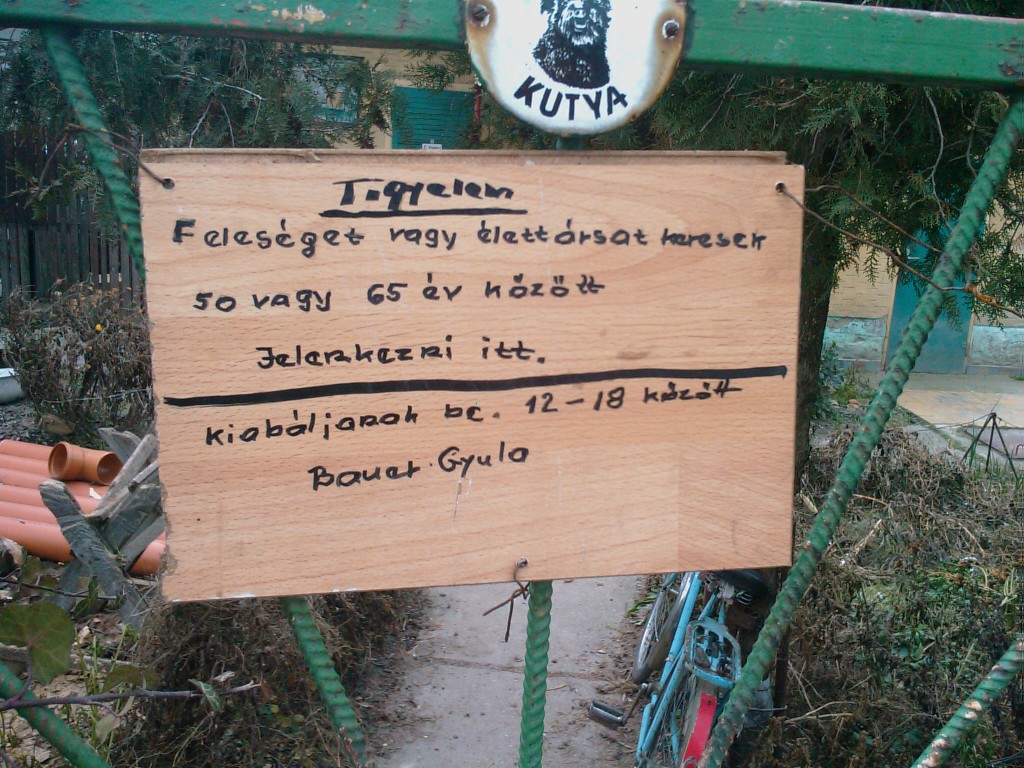 KUTYA
Tigyelem
Feleséget vagy élettársat keresek
50 vagy 65 év között
Jelenkezni itt.
Kiabáljanak be. 12-18 között
Bauer Gyula